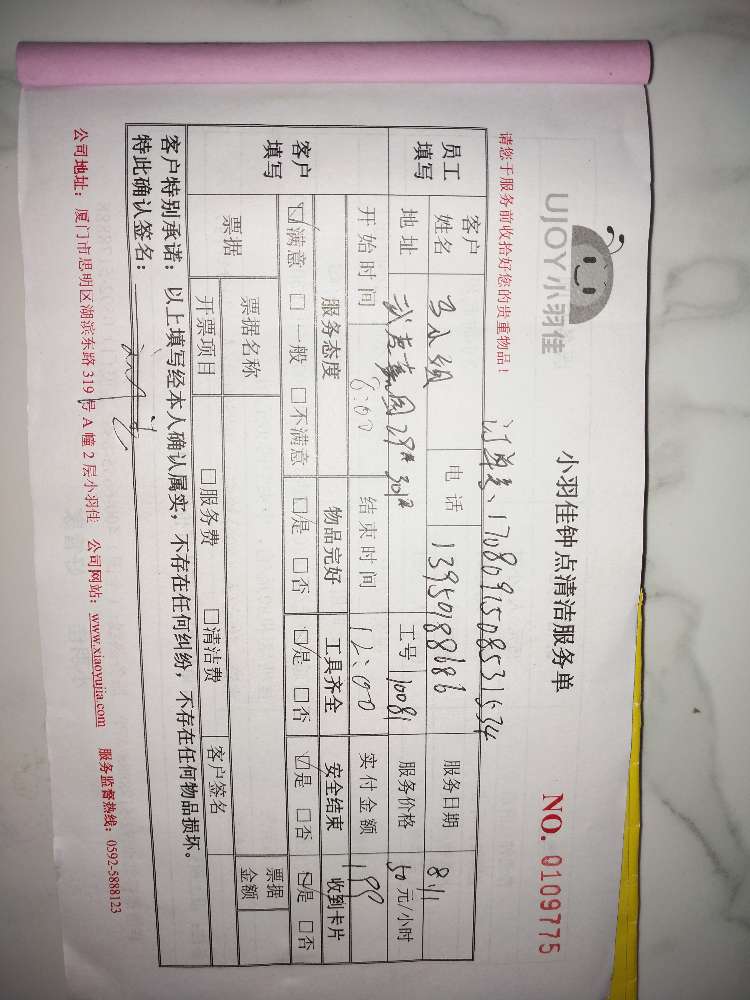 UJOY小羽佳
小羽佳钟点清洁服务单
NO. 0109775
请您于服务前收拾好您的贵重物品！
订单号：
员工填写
客户姓名
电话 13950188686
服务日期 8/1
地址 29# 301#
工号 10081
服务价格 50元/小时
开始时间 8:00
结束时间 12:00
实付金额
客户填写
服务态度 物品完好 工具齐全 安全结束 收到卡片
☑满意 □一般 □不满意 ☑是 □否 ☑是 □否 ☑是 □否 ☑是 □否
票据 票据名称 票据金额
开票项目 □服务费 □清洁费 客户签名
客户特别承诺：以上填写经本人确认属实，不存在任何纠纷，不存在任何物品损坏。
特此确认签名：
公司地址：厦门市思明区湖滨东路 319 号 A 幢 2 层小羽佳 公司网站：www.xiaoyujia.com 服务监督热线：0592-5888123